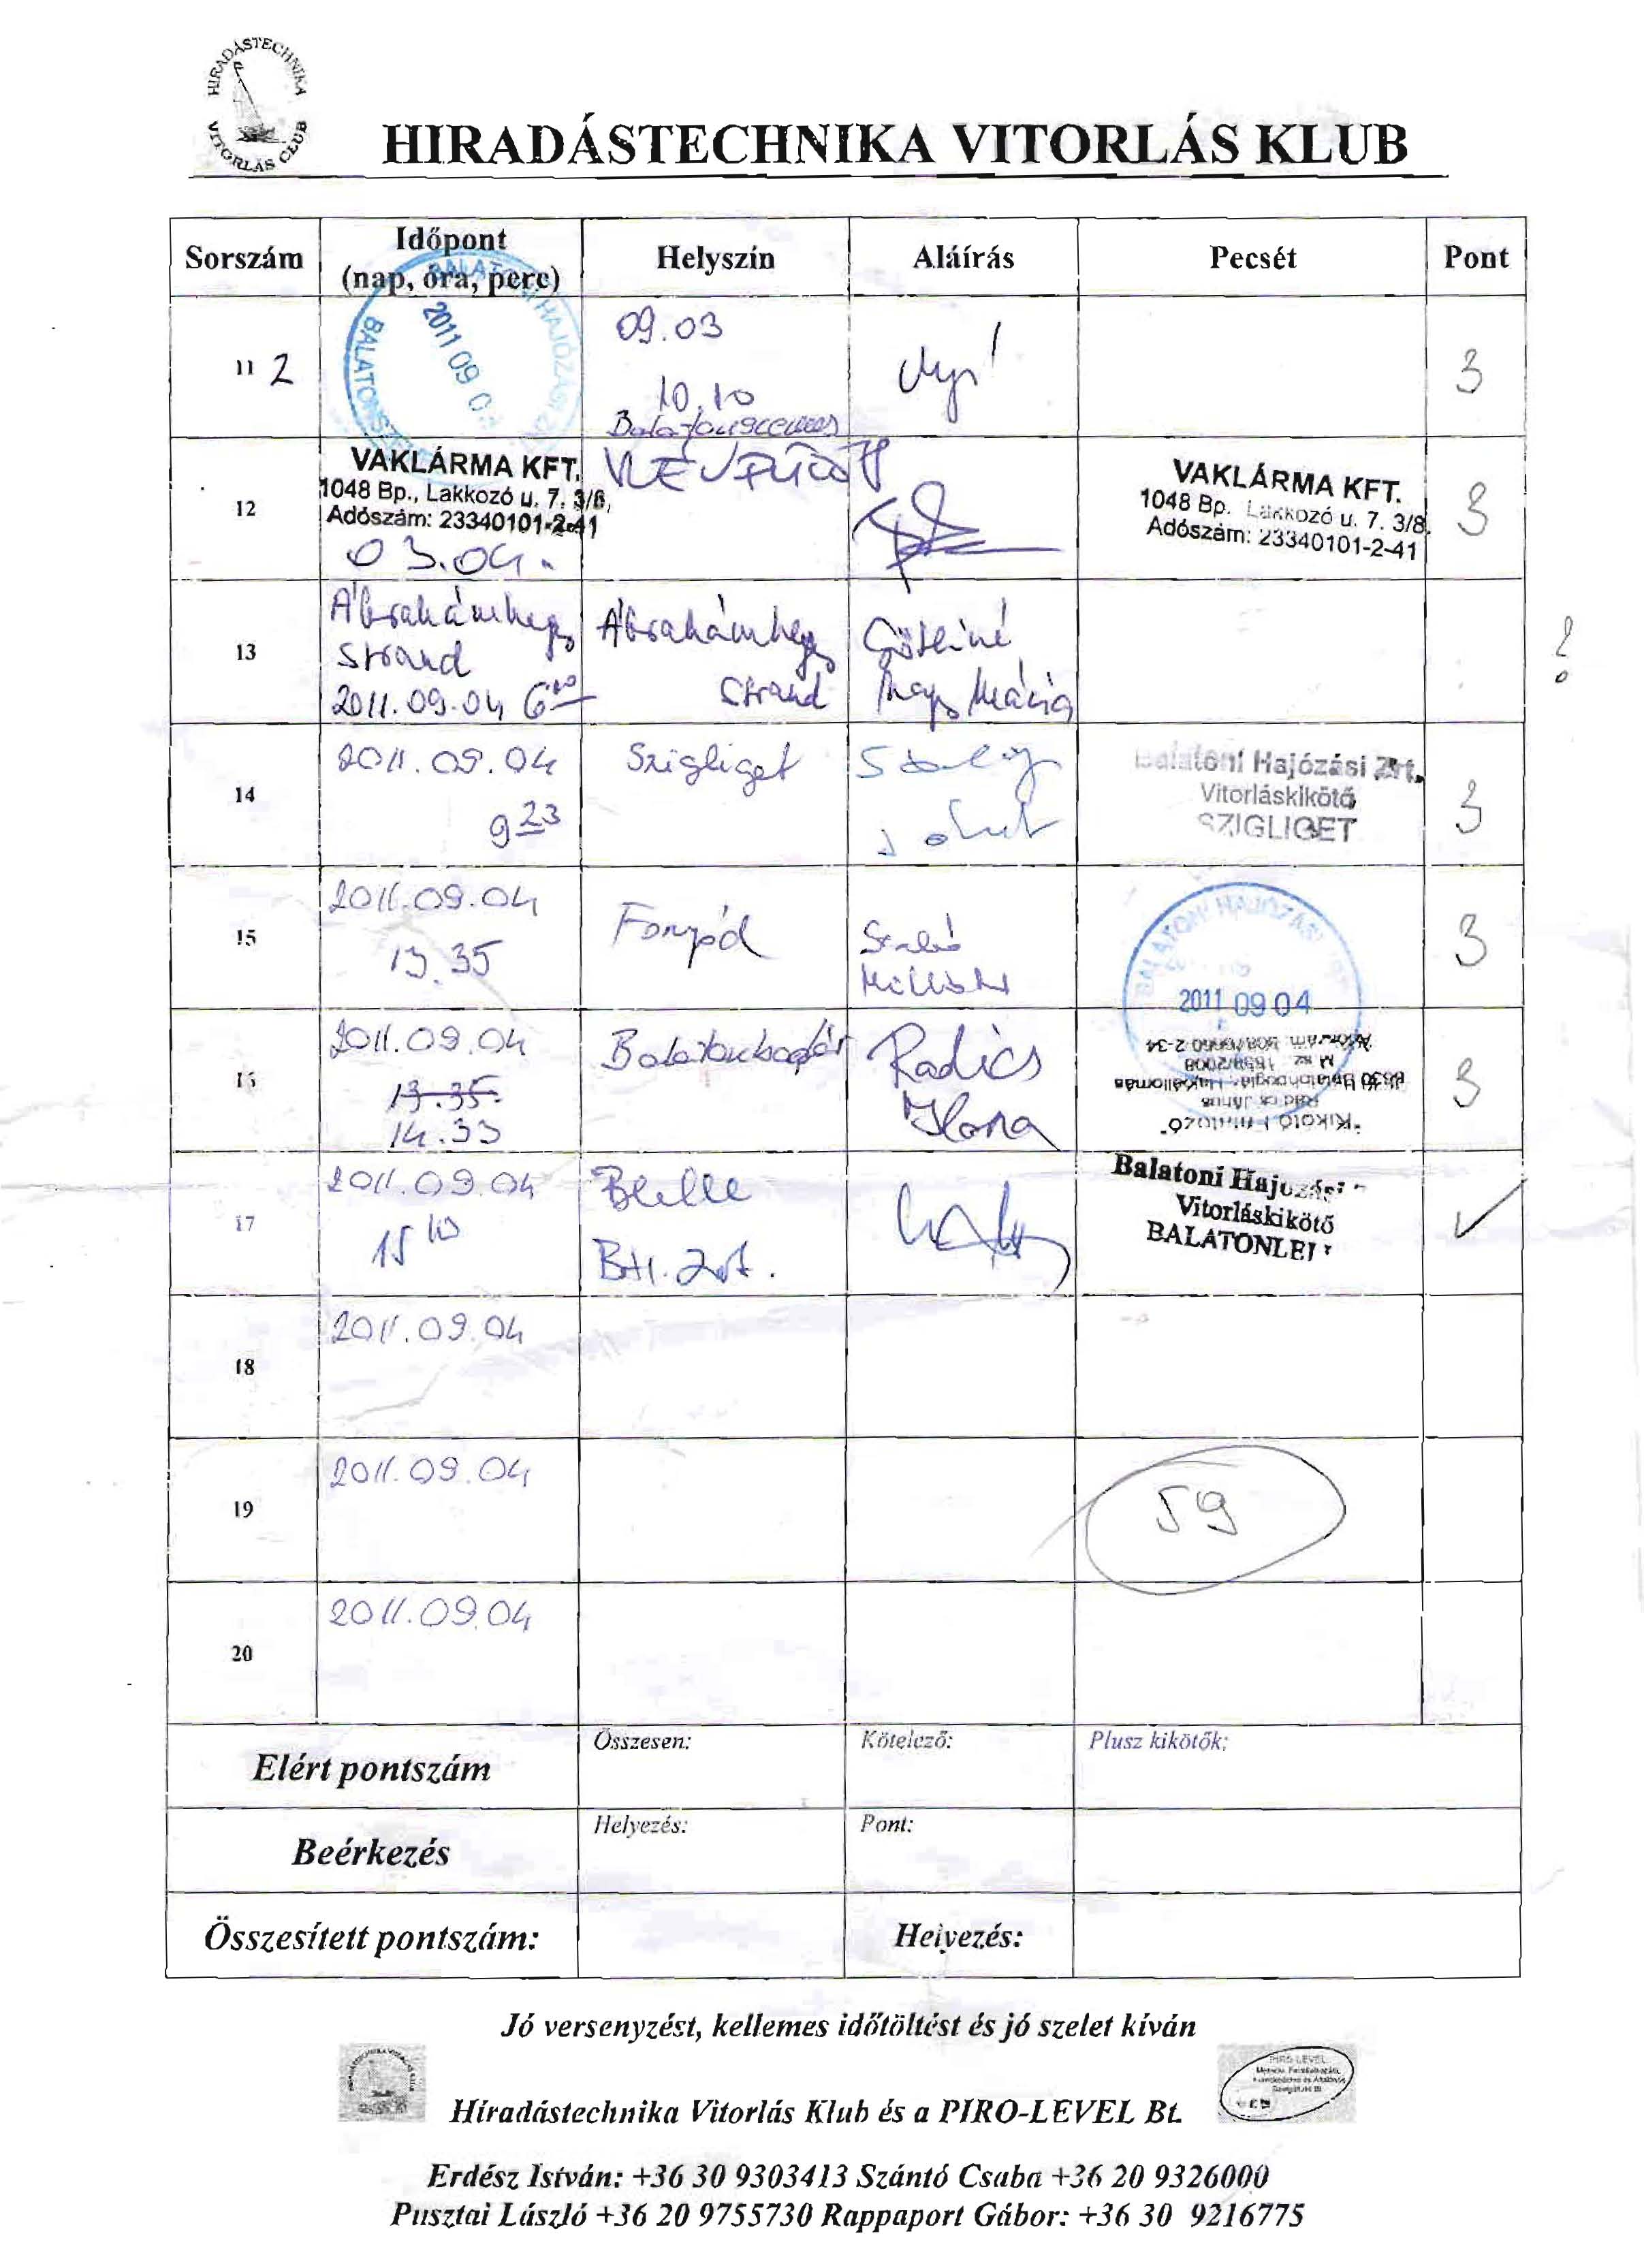 HIRADÁSTECHNIKA
VITORLÁS CLUB
HIRADÁSTECHNIKA VITORLÁS KLUB
Sorszám
Időpont
(nap, óra, perc)
Helyszín
Aláírás
Pecsét
Pont
11 2
2011 09 0
09.03
10.10
3
12
VAKLÁRMA KFT.
1048 Bp., Lakkozó u. 7. 3/8,
Adószám: 23340101-2-41
03.04.
VAKLÁRMA KFT.
1048 Bp. Lakkozó u. 7. 3/8.
Adószám: 23340101-2-41
3
13
Ábrahámhegy
Strand
2011.09.04 6
Ábrahámhegy
Strand
Nagy Mária
?
14
2011.09.04
9 23
Szigliget
Balatoni Hajózási Zrt.
Vitorláskikötő
SZIGLIGET
3
15
2011.09.04
13.35
Fonyód
Szabó
BALATONI HAJÓZÁSI
2011 09 04
3
16
2011.09.04
13.35
14.33
Balatonboglár
Radics
Ilona
3
17
2011.09.04
15 10
Blelle
BH. Zrt.
Balatoni Hajózási
Vitorláskikötő
BALATONLEL
18
2011.09.04
19
2011.09.04
59
20
2011.09.04
Elért pontszám
Összesen:
Kötelező:
Plusz kikötők:
Beérkezés
Helyezés:
Pont:
Összesített pontszám:
Helyezés:
Jó versenyzést, kellemes időtöltést és jó szelet kíván
Híradástechnika Vitorlás Klub és a PIRO-LEVEL Bt.
PIRO LEVEL
Erdész István: +36 30 9303413 Szántó Csaba +36 20 9326000
Pusztai László +36 20 9755730 Rappaport Gábor: +36 30 9216775